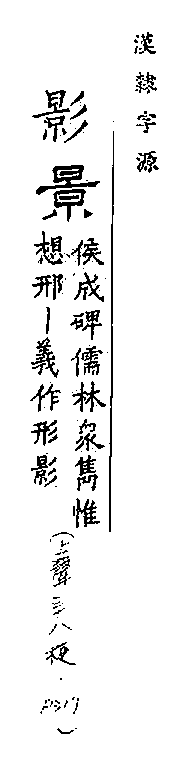 漢隸字源
影
景
侯成碑儒林衆雋惟
想邢丨義作形影
(上聲三八梗.P317)